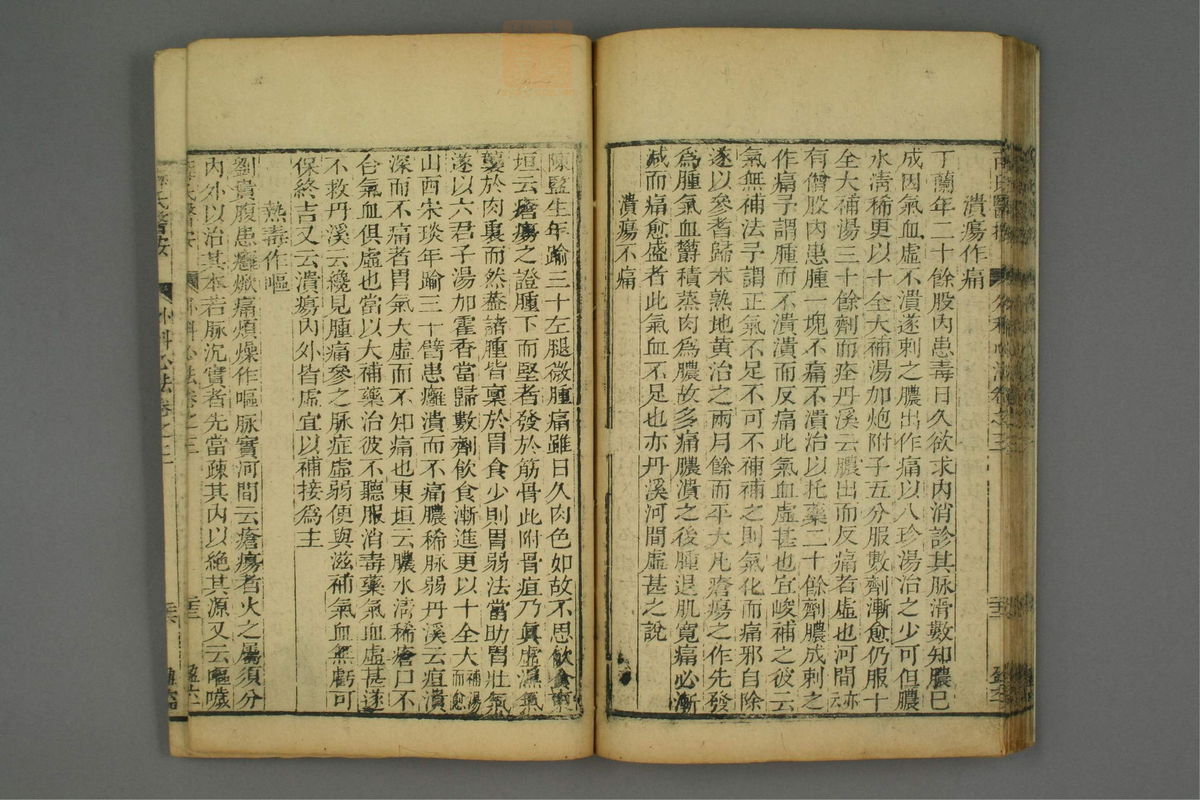 潰瘍作痛
丁蘭年二十餘股內患毒日久欲求內消診其脉滑數知膿已
成因氣血虛不潰遂刺之膿出作痛以八珍湯治之少可但膿
水淸稀更以十全大補湯加炮附子五分服數劑漸愈仍服十
全大補湯三十餘劑而痊丹溪云膿出而反痛者虛也河間亦云
有僧股內患腫一塊不痛不潰治以托藥二十餘劑膿成刺之
作痛予謂腫而不潰潰而反痛此氣血虛甚也宜峻補之彼云
氣無補法予謂正氣不足不可不補補之則氣化而痛邪自除
遂以參耆歸朮熟地黃治之兩月餘而平大凡瘡瘍之作先發
爲腫氣血欝積蒸肉爲膿故多痛膿潰之後腫退肌寬痛必漸
減而痛愈盛者此氣血不足也亦丹溪河間虛甚之說
潰瘍不痛
陳監生年踰三十左腿微腫痛雖日久肉色如故不思飲食東
垣云瘡瘍之證腫下而堅者發於筋骨此附骨疽乃眞虛濕氣
襲於肉裏而然蓋諸腫皆稟於胃食少則胃弱法當助胃壯氣
遂以六君子湯加霍香當歸數劑飮食漸進更以十全大補湯而愈
山西宋琰年踰三十臂患癰潰而不痛膿稀脉弱丹溪云疽潰
深而不痛者胃氣大虛而不知痛也東垣云膿水淸稀瘡口不
合氣血俱虛也當以大補藥治彼不聽服消毒藥氣血虛甚遂
不救丹溪云纔見腫痛參之脉症虛弱便與滋補氣血無虧可
保終吉又云潰瘍內外皆虛宜以補接爲主
熱毒作嘔
劉貴腹患癰焮痛煩燥作嘔脉實河間云瘡瘍者火之屬須分
內外以治其本若脉沉實者先當疎其內以絶其源又云嘔噦
薛氏醫按
外科心法卷之三